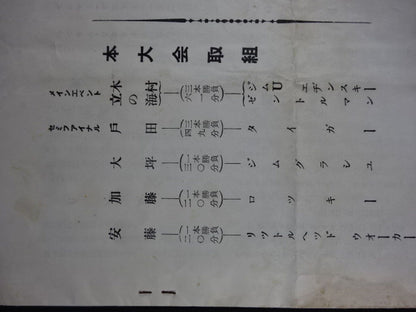 本大会取組
メインエベント 木村 立の海 三本勝負 六一分 ジムUエヂンスキー ゼントルマン
セミフアイナル 戸田 三本勝負 四九分 タイガー
大坪 一本勝負 三〇分 ジムグラシユー
加藤 一本勝負 二〇分 ロツキー
安藤 一本勝負 二〇分 リツトルヘツドウオーカー